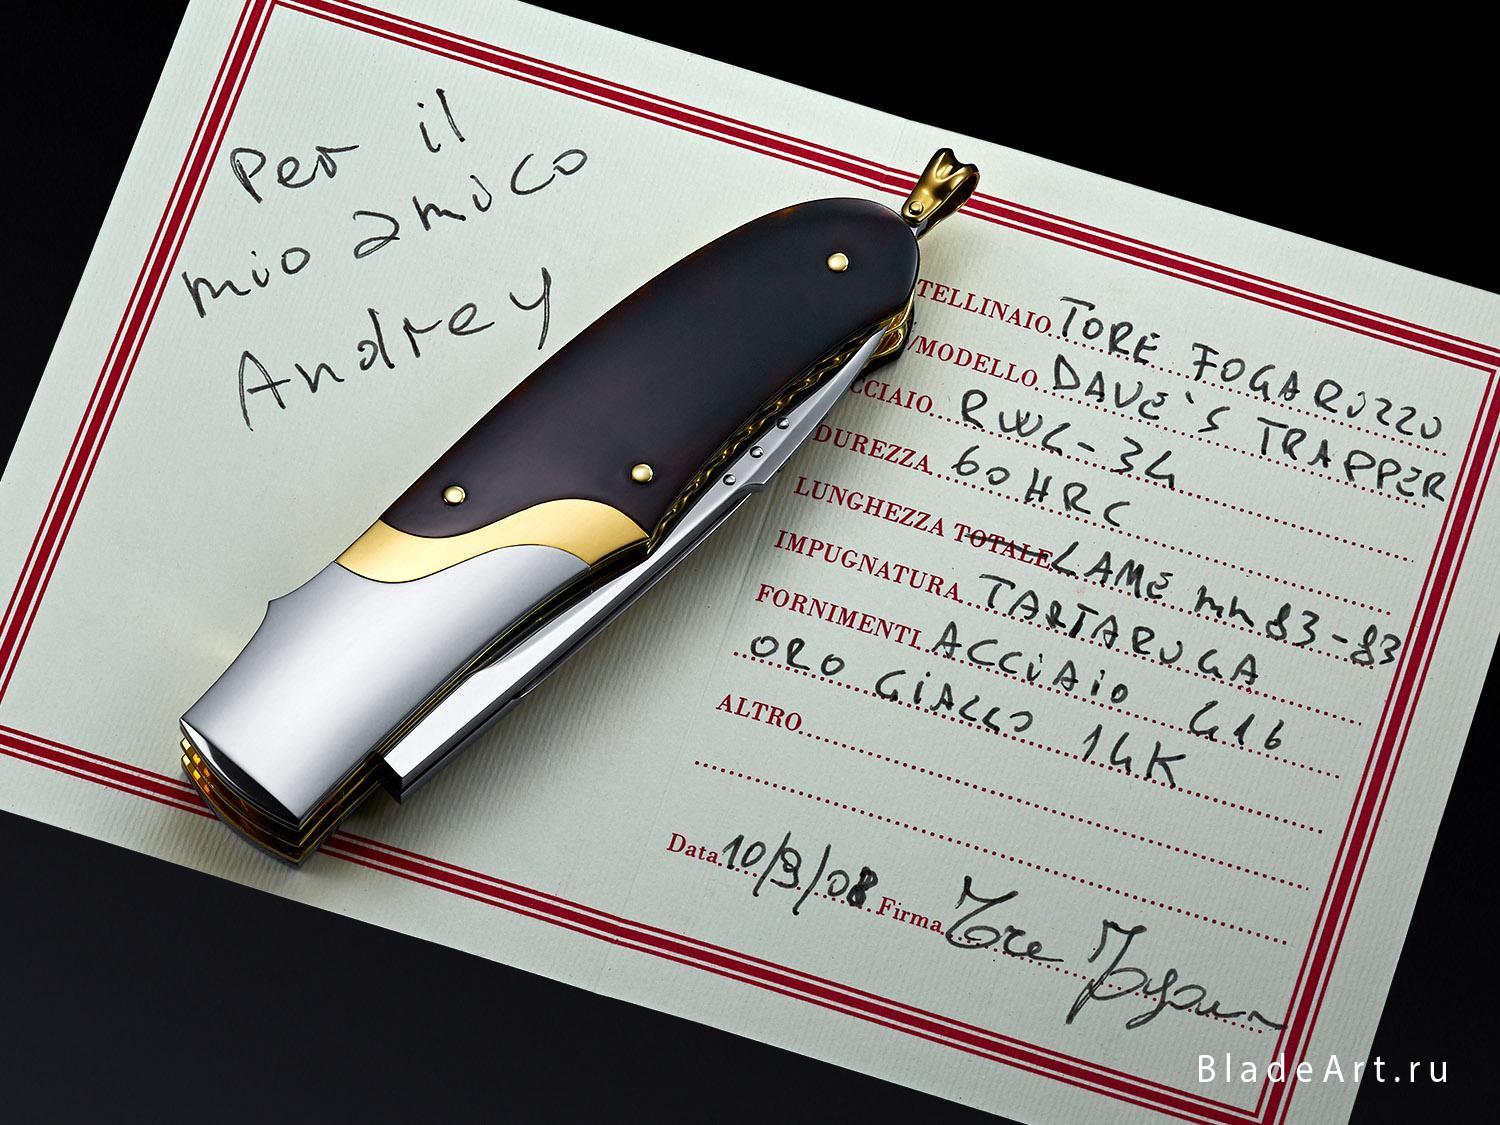 Per il
mio amico
Andrey
TELLINAIO TORE FOGARIZZU
/MODELLO DAVE'S TRAPPER
CCIAIO RWL-34
DUREZZA 60 HRC
LUNGHEZZA TOTALE LAME mm 83-83
IMPUGNATURA TARTARUGA
FORNIMENTI ACCIAIO 416
ORO GIALLO 14K
ALTRO
Data 10/9/08 Firma Tore
BladeArt.ru